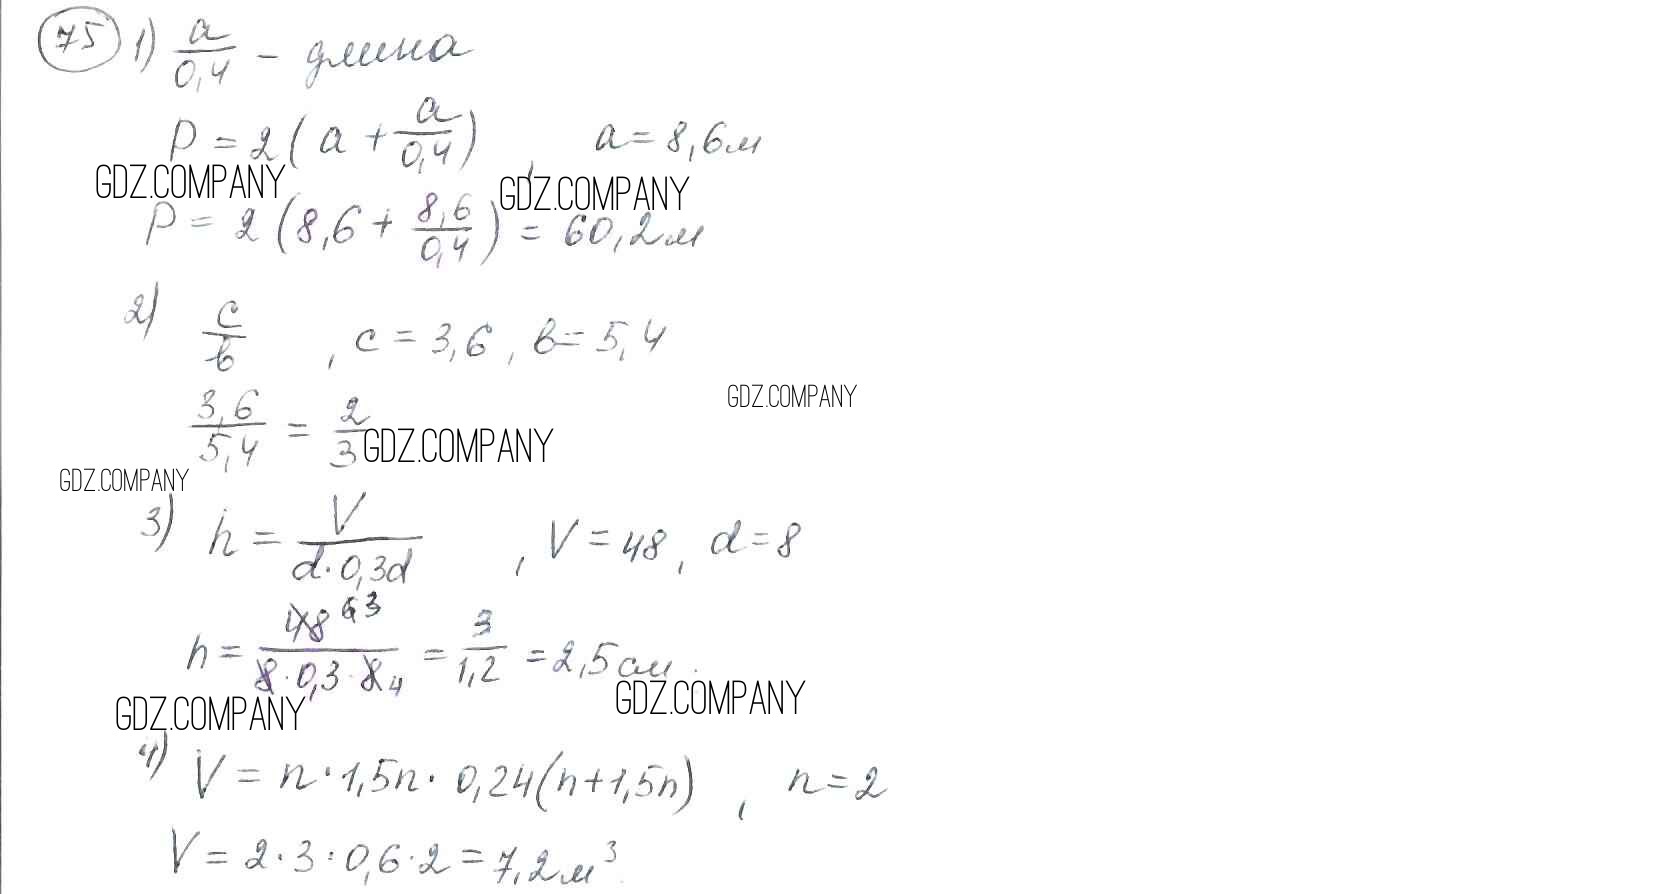 75 1) a/0,4 - длина
P = 2(a + a/0,4), a = 8,6м
GDZ.COMPANY GDZ.COMPANY
P = 2(8,6 + 8,6/0,4) = 60,2м
2) c/b, c = 3,6, b = 5,4
GDZ.COMPANY
3,6/5,4 = 2/3 GDZ.COMPANY
GDZ.COMPANY
3) h = V/d·0,3d, V = 48, d = 8
h = 48 6 3/8·0,3·8 4 = 3/1,2 = 2,5см.
GDZ.COMPANY GDZ.COMPANY
4) V = n·1,5n·0,24(n+1,5n), n = 2
V = 2·3·0,6·2 = 7,2м³.